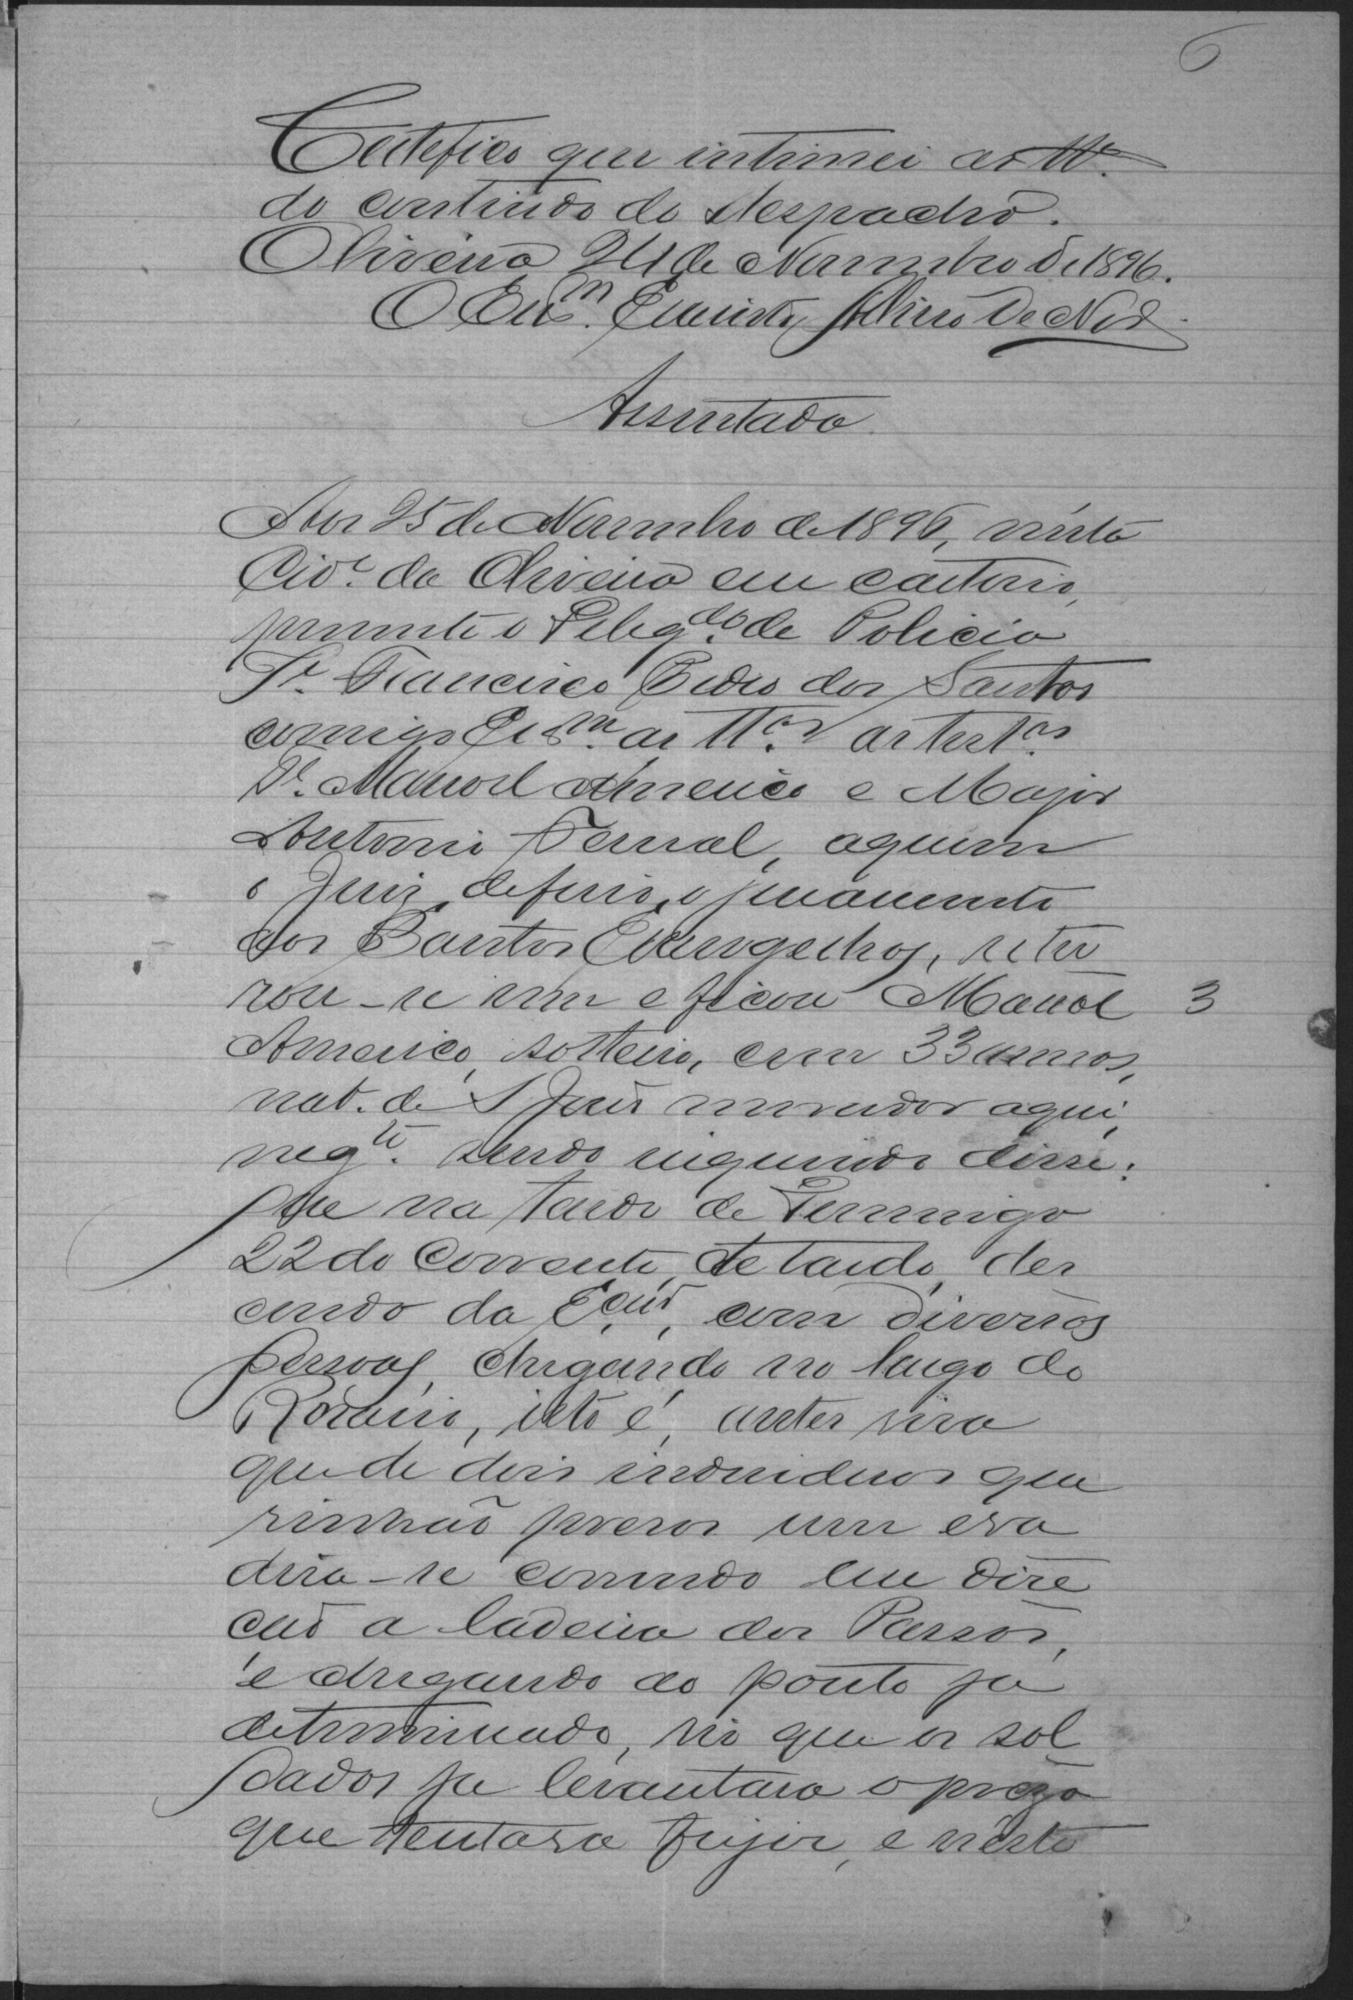 6
Certefico que intimei as tt.as
do contiudo do despachô.
Oliveira 24 de Novembro de 1896.
O Es.m
Assentada
Aos 25 de Novembro de 1896, nésta
Cid.e da Oliveira em cartorio,
presente o Deleg.do de Policia
Sr. Francisco Pedro dos Santos
comigo Es.m as tt.as as test.as
Sr. Manoel Americo e Major
Antonio Ferral, aquem
o Juiz deferio o juramento
dos Santos Evangelhos, retir
rou-se um e ficou Manoel 3
Americo, solteiro, com 33 annos,
nat. de S José morador aqui,
neg.te sendo inquirido disse:
Que na tarde de Domingo
22 do Corrente, de tarde, des
cendo da E.cão, com diversos
pessoas, chegando no largo do
Rozario, isto é, antes vira
que de dois individuos que
vinhão prezos um eva
dira-se correndo em dire
cão a ladeira dos Passos,
e chegando ao ponto ja
determinado, vio que os sol
dados ja levantara o prezo
que tentara fujir, e nésta